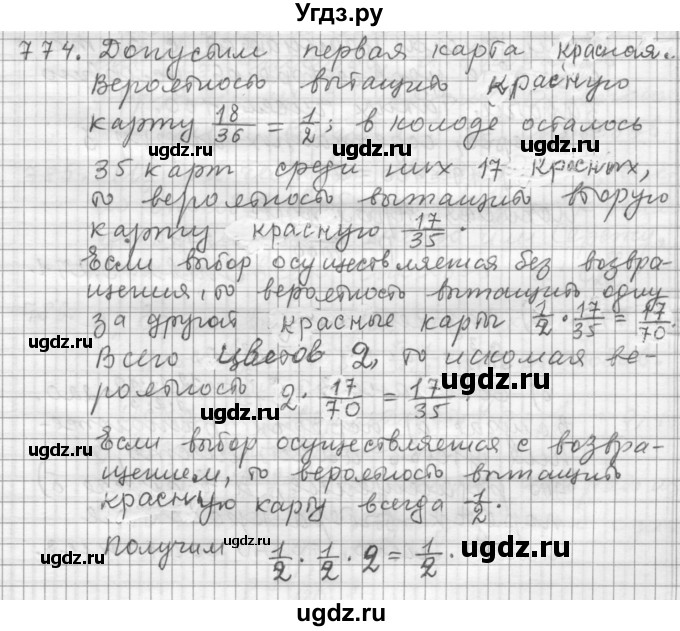 Угдз.ру
774. Допустим первая карта красная.
Вероятность вытащить красную
карту 18/36 = 1/2; в колоде осталось
ugdz.ru ugdz.ru
35 карт среди них 17 красных,
то вероятность вытащить вторую
карту красную 17/35.
ugdz.ru
Если выбор осуществляется без возвра-
щения, то вероятность вытащить одну
за другой красные карты 1/2 · 17/35 = 17/70.
ugdz.ru
Всего цветов 2, то искомая ве-
ugdz.ru
роятность 2 · 17/70 = 17/35.
ugdz.ru
Если выбор осуществляется с возвра-
ugdz.ru
щением, то вероятность вытащить
красную карту всегда 1/2.
ugdz.ru
Получим 1/2 · 1/2 · 2 = 1/2.
ugdz.ru
ugdz.ru
ugdz.ru
ugdz.ru